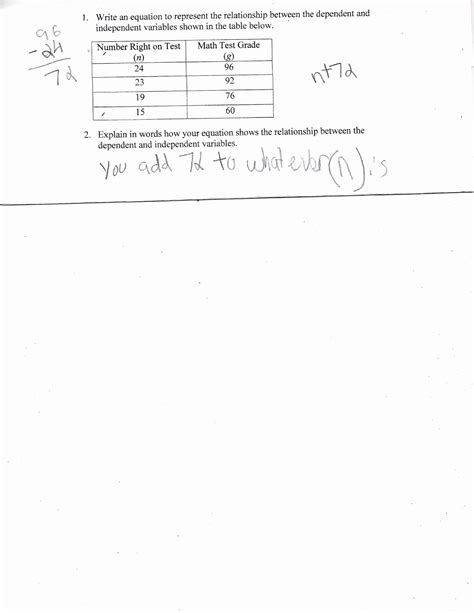 1. Write an equation to represent the relationship between the dependent and
independent variables shown in the table below.
96
- 24
72
Number Right on Test (n) Math Test Grade (g)
24 96
23 92
19 76
15 60
n+72
2. Explain in words how your equation shows the relationship between the
dependent and independent variables.
You add 72 to whatever (n) is